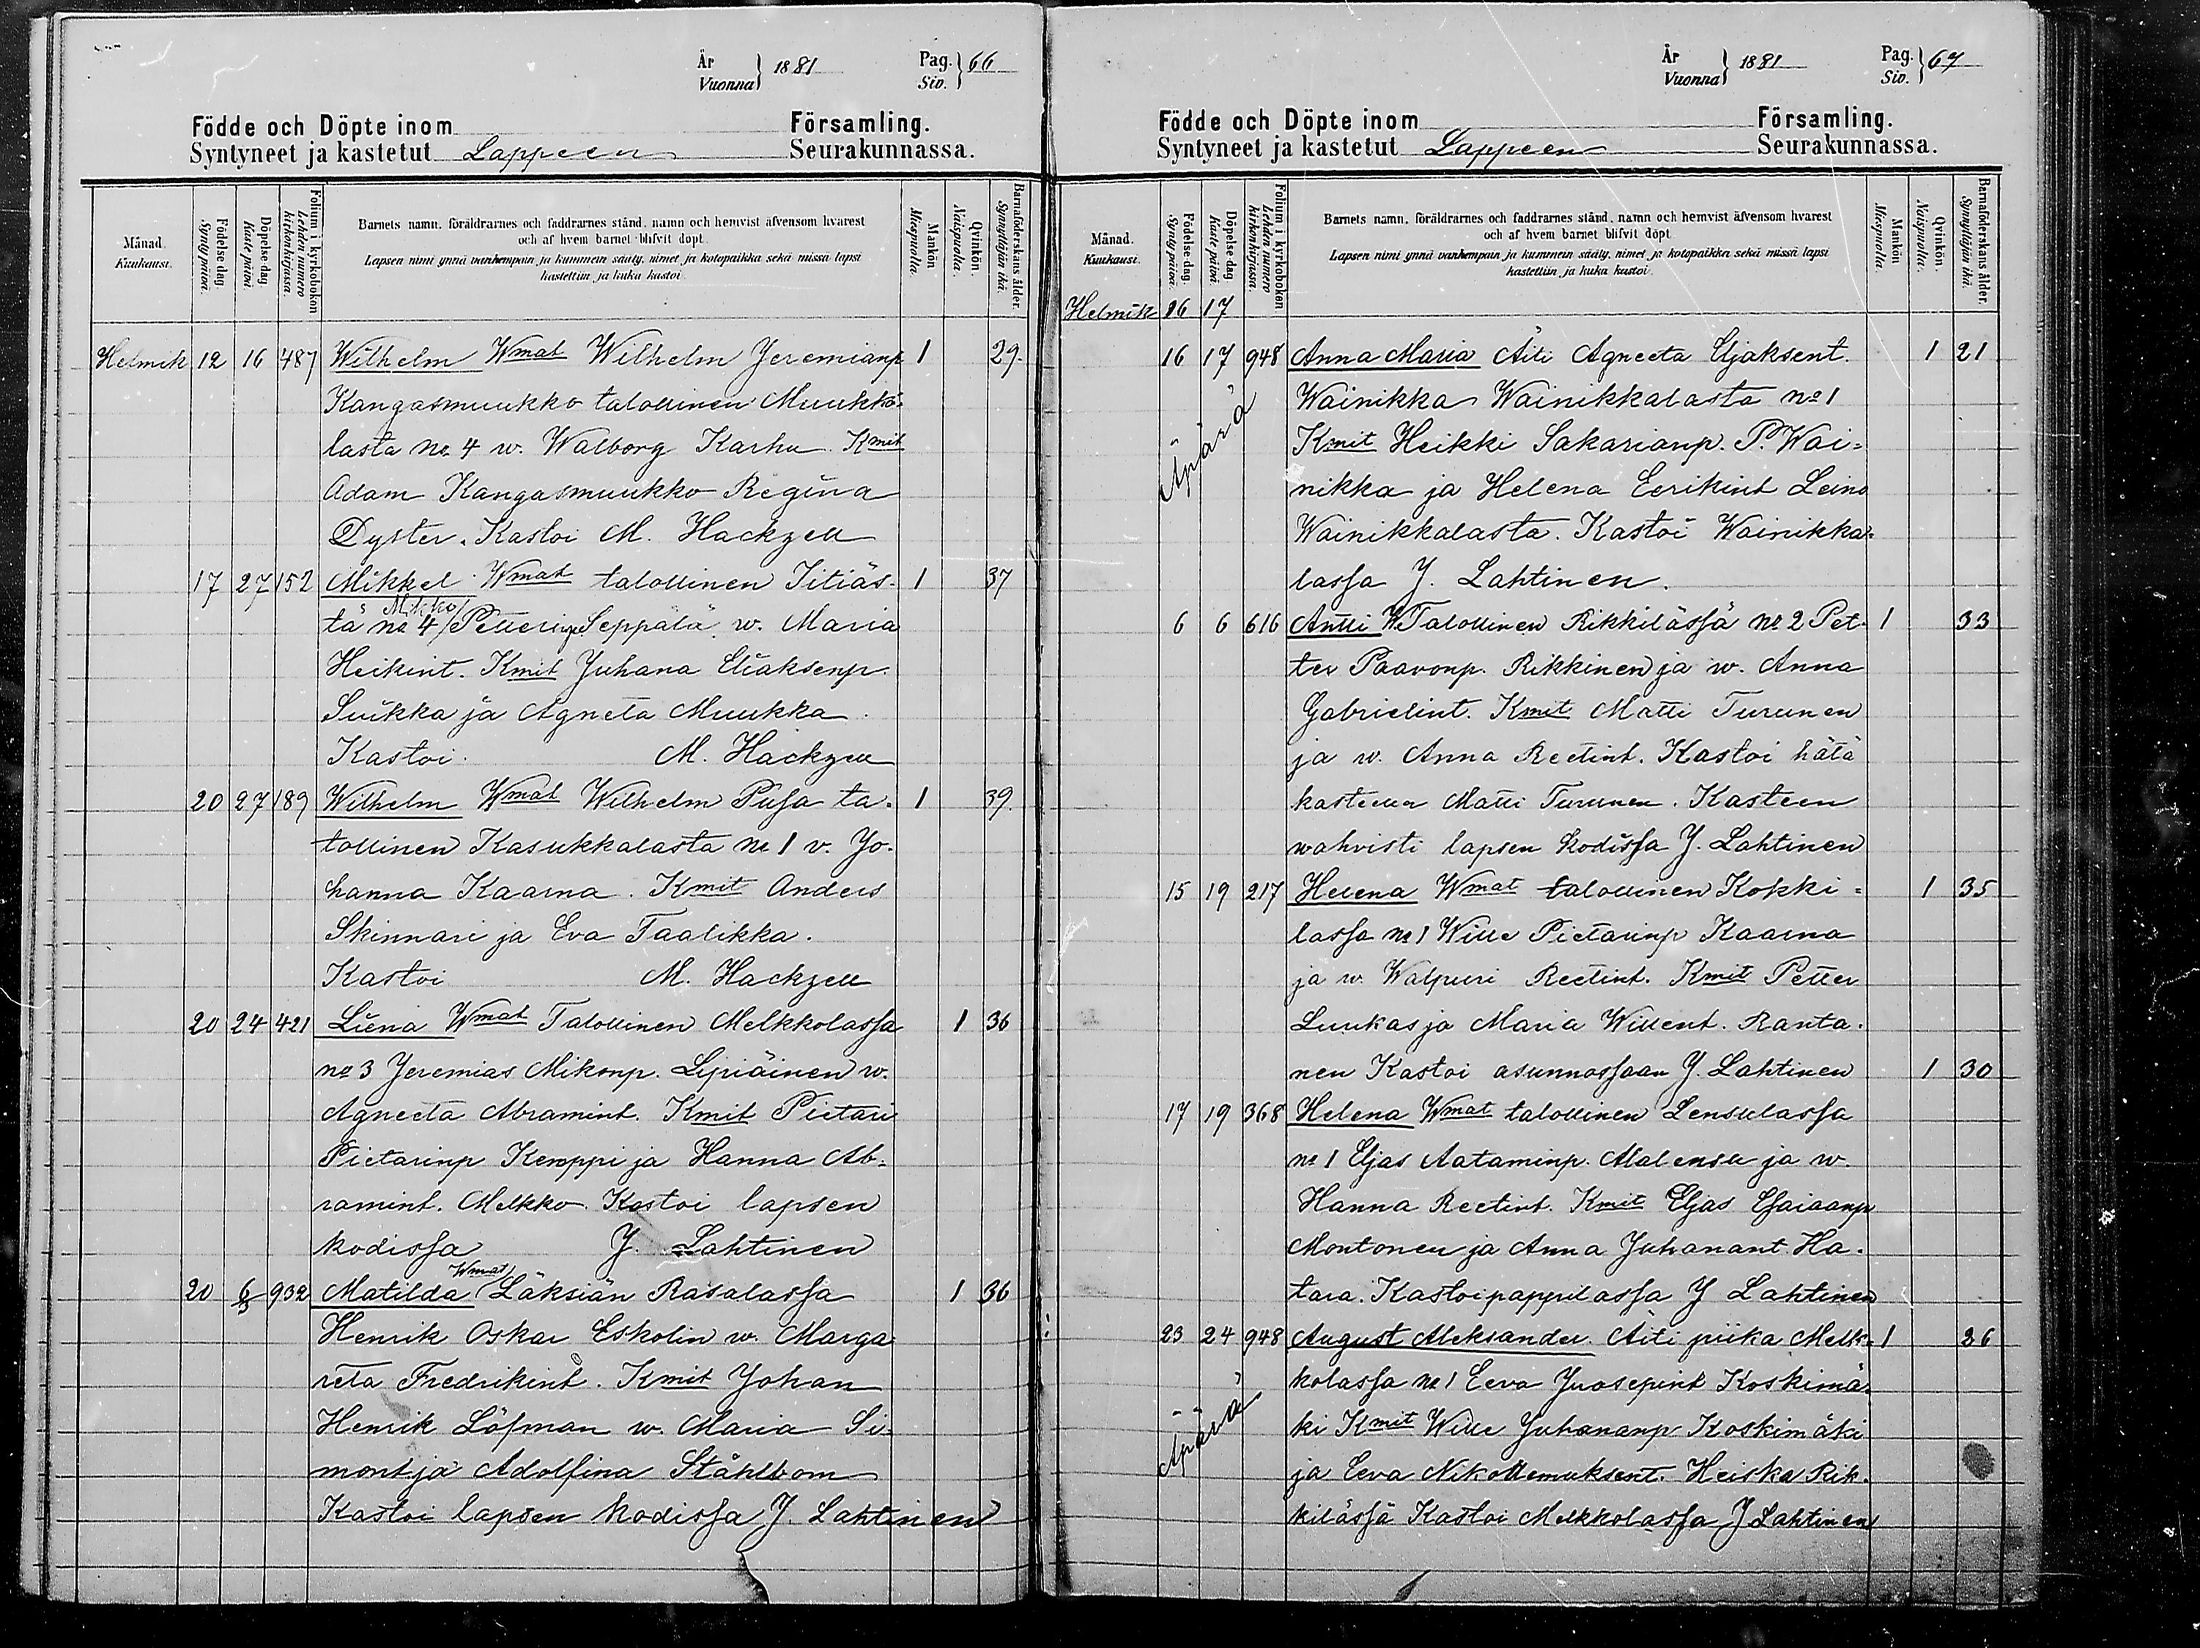 År Vuonna } 1881
Pag. Siv. } 66
Födde och Döpte inom Församling.
Syntyneet ja kastetut Lappeen Seurakunnassa.
Månad. Kuukausi.
Födelse dag. Synty päivä.
Döpelse dag. Kaste päivä.
Folium i kyrkoboken Lehden numero kirkonkirjassa.
Barnets namn, föräldrarnes och faddrarnes stånd, namn och hemvist äfvensom hvarest
och af hvem barnet blifvit döpt.
Lapsen nimi ynnä vanhempain ja kummein sääty, nimet ja kotopaikka sekä missä lapsi
kastettiin ja kuka kastoi.
Mankön Miespuolia.
Qvinkön. Naispuolia.
Barnaföderskans ålder. Synnyttäjän ikä.
Helmik 12 16 487 Wilhelm Wmat Wilhelm Jeremianp 1 29.
Kangasmuukko talollinen Muukko-
lasta No 4 w. Walborg Karhu. Kmit
Adam Kangasmuukko Regina
Dyster. Kastoi M. Hackzell
17 27 152 Mikkel Wmat talollinen Iitiäs- 1 37
Mikko
tä No 4 Petterinp Seppälä w. Maria
Heikint. Kmit Juhana Eliaksenp.
Suikka ja Agneta Muukka.
Kastoi. M. Hackzell
20 27 189 Wilhelm Wmat Wilhelm Pusa ta- 1 39.
tollinen Kasukkalasta No 1 v. Jo-
hanna Kaarna. Kmit Anders
Skinnari ja Eva Taalikka.
Kastoi M. Hackzell
20 24 421 Liena Wmat Talollinen Melkkolassa 1 36
No 3 Jeremias Mikonp. Lipiäinen w.
Agneeta Abramint. Kmit Pietari
Pietarinp Kemppi ja Hanna Ab-
ramint. Melkko. Kastoi lapsen
kodissa J. Lahtinen
Wmat
20 932 Matilda Läksiän Rasalassa 1 36
Henrik Oskar Eskolin w. Marga-
reta Fredrikint. Kmit Johan
Henrik Löfman w. Maria Si-
mont ja Adolfina Ståhlbom
Kastoi lapsen kodissa J. Lahtinen
År Vuonna } 1881
Pag. Siv. } 67
Födde och Döpte inom Församling.
Syntyneet ja kastetut Lappeen Seurakunnassa.
Månad. Kuukausi.
Födelse dag. Synty päivä.
Döpelse dag. Kaste päivä.
Folium i kyrkoboken Lehden numero kirkonkirjassa.
Barnets namn, föräldrarnes och faddrarnes stånd, namn och hemvist äfvensom hvarest
och af hvem barnet blifvit döpt.
Lapsen nimi ynnä vanhempain ja kummein sääty, nimet ja kotopaikka sekä missä lapsi
kastettiin ja kuka kastoi.
Mankön Miespuolia.
Qvinkön. Naispuolia.
Barnaföderskans ålder. Synnyttäjän ikä.
Helmik 16 17
16 17 948 Anna Maria Äiti Agneeta Eljaksent. 1 21
Wainikka Wainikkalasta No 1
Äpärä
Kmit Heikki Sakarianp. P. Wai-
nikka ja Helena Eerikint Leino
Wainikkalasta. Kastoi Wainikka-
lassa J. Lahtinen.
6 6 616 Antti W. Talollinen Rikkilässä No 2 Pet- 1 33
ter Paavonp. Rikkinen ja w. Anna
Gabrielint. Kmit Matti Turunen
ja w. Anna Reetint. Kastoi hätä
kasteella Matti Turunen. Kasteen
wahvisti lapsen kodissa J. Lahtinen
15 19 217 Helena Wmat talollinen Kokki- 1 35
lassa No 1 Wille Pietarinp Kaarna
ja w. Walpuri Reetint. Kmit Petter
Luukas ja Maria Willent. Ranta-
nen Kastoi asunnossaan J. Lahtinen 1 30
17 19 368 Helena Wmat talollinen Lensulassa
No 1 Eljas Aataminp. Malensu ja w.
Hanna Reetint. Kmit Eljas Esaiaanp
Montonen ja Anna Juhanant. Ha-
tara. Kastoi pappilassa J Lahtinen
23 24 948 August Aleksander Äiti piika Melk- 1 26
kolassa No 1 Eeva Juosepint Koskimä-
Äpärä
ki Kmit Wille Juhananp Koskimäki
ja Eeva Nikottemuksent. Heiska Rik-
kilässä Kastoi Melkkolassa J Lahtinen